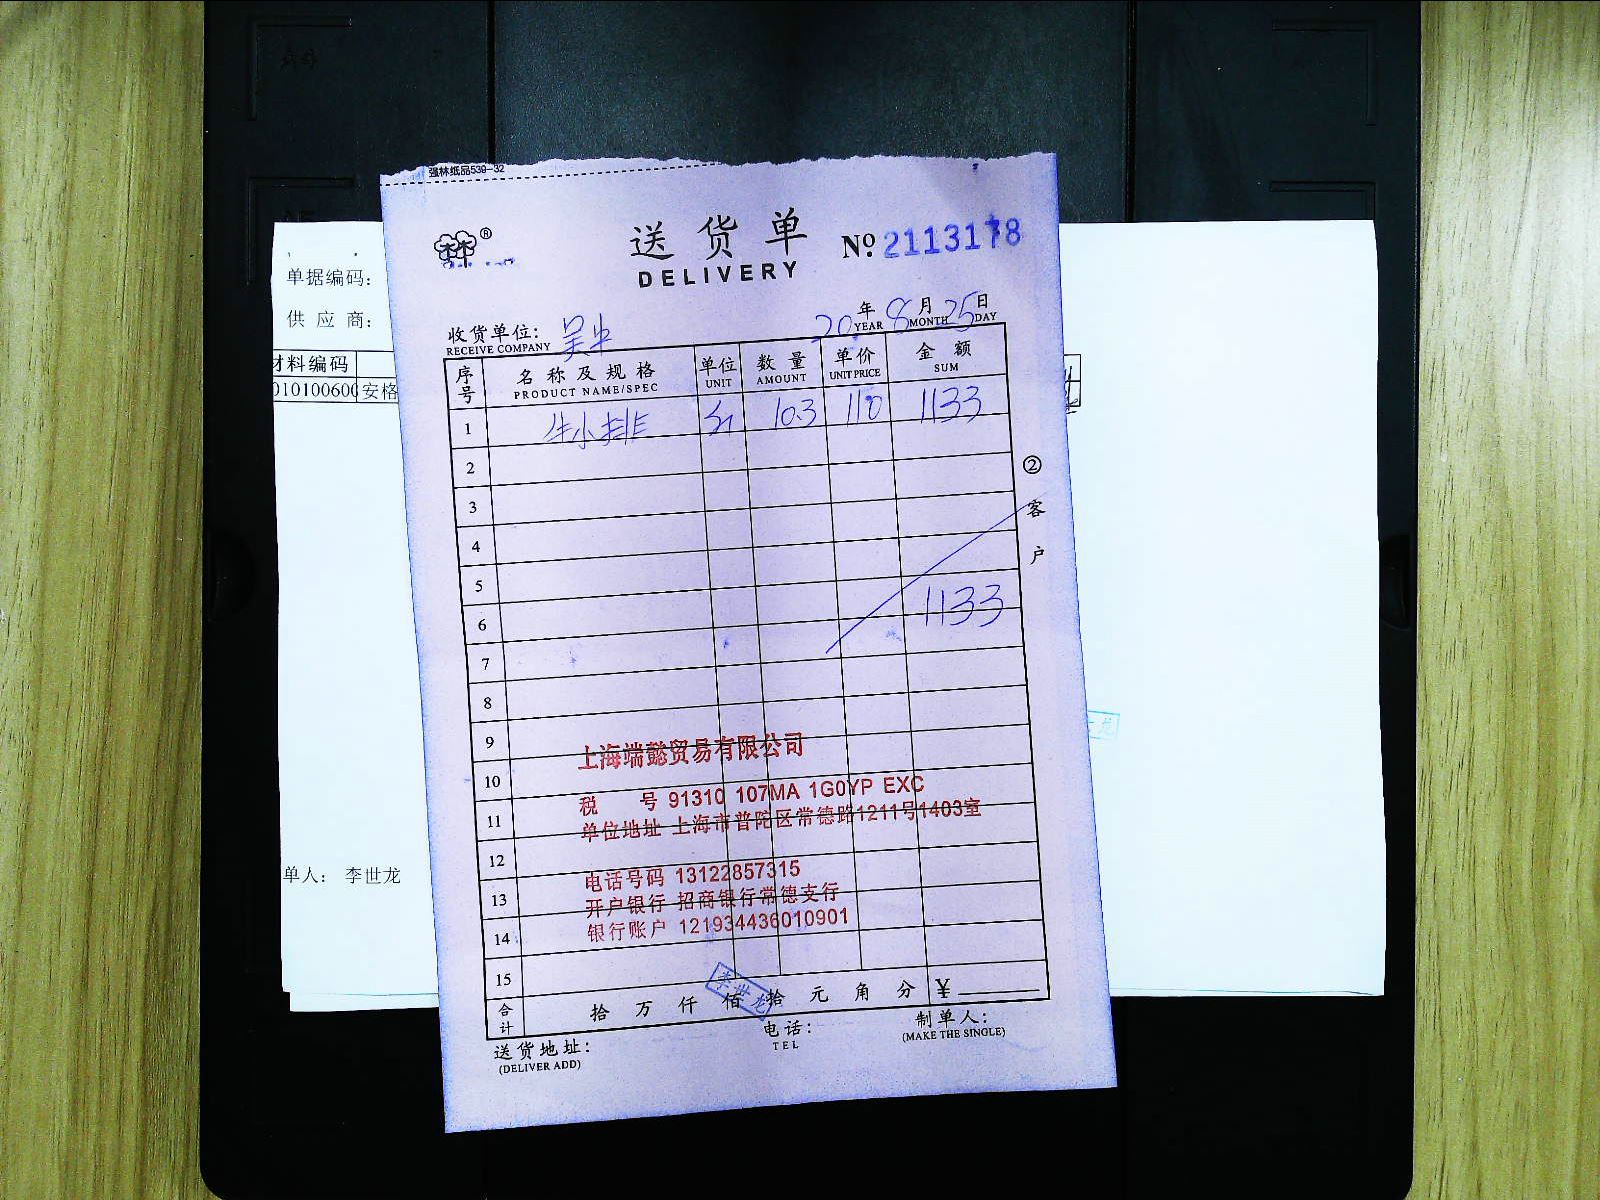 强林纸品539-32
送货单
DELIVERY
No. 2113178
单据编码：
供应商：
材料编码
01010060 安格
单人： 李世龙
收货单位：
RECEIVE COMPANY
20 年 8 月 25 日
YEAR MONTH DAY
序号 名称及规格 单位 数量 单价 金额
PRODUCT NAME/SPEC UNIT AMOUNT UNIT PRICE SUM
1 牛小排 斤 10.3 110 1133
2
3
4
5
6 1133
7
8
9
10
11
12
13
14
15
② 客户
上海端懿贸易有限公司
税 号 91310 107MA 1G0YP EXC
单位地址 上海市普陀区常德路1211号1403室
电话号码 13122857315
开户银行 招商银行常德支行
银行账户 121934436010901
合计 拾 万 仟 佰 拾 元 角 分 ¥
李世龙
送货地址：
(DELIVER ADD)
电话：
TEL
制单人：
(MAKE THE SINGLE)